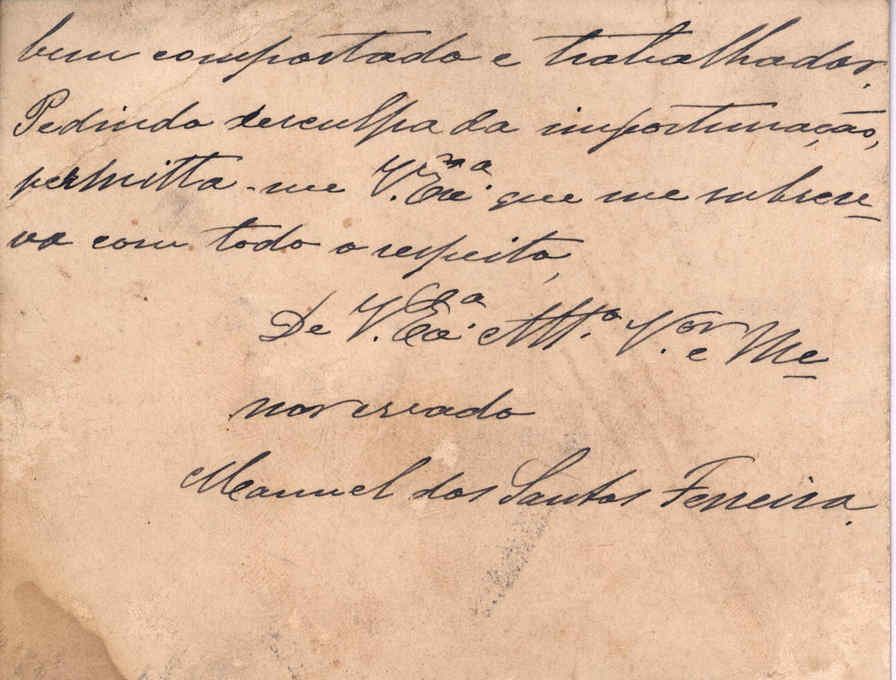 bem comportado e trabalhador.
Pedindo desculpa da importunação,
permitta-me V. Exª. que me subscre-
va com todo o respeito,
De V. Exª. Attº. Vor. e Me-
nor creado
Manuel dos Santos Ferreira.